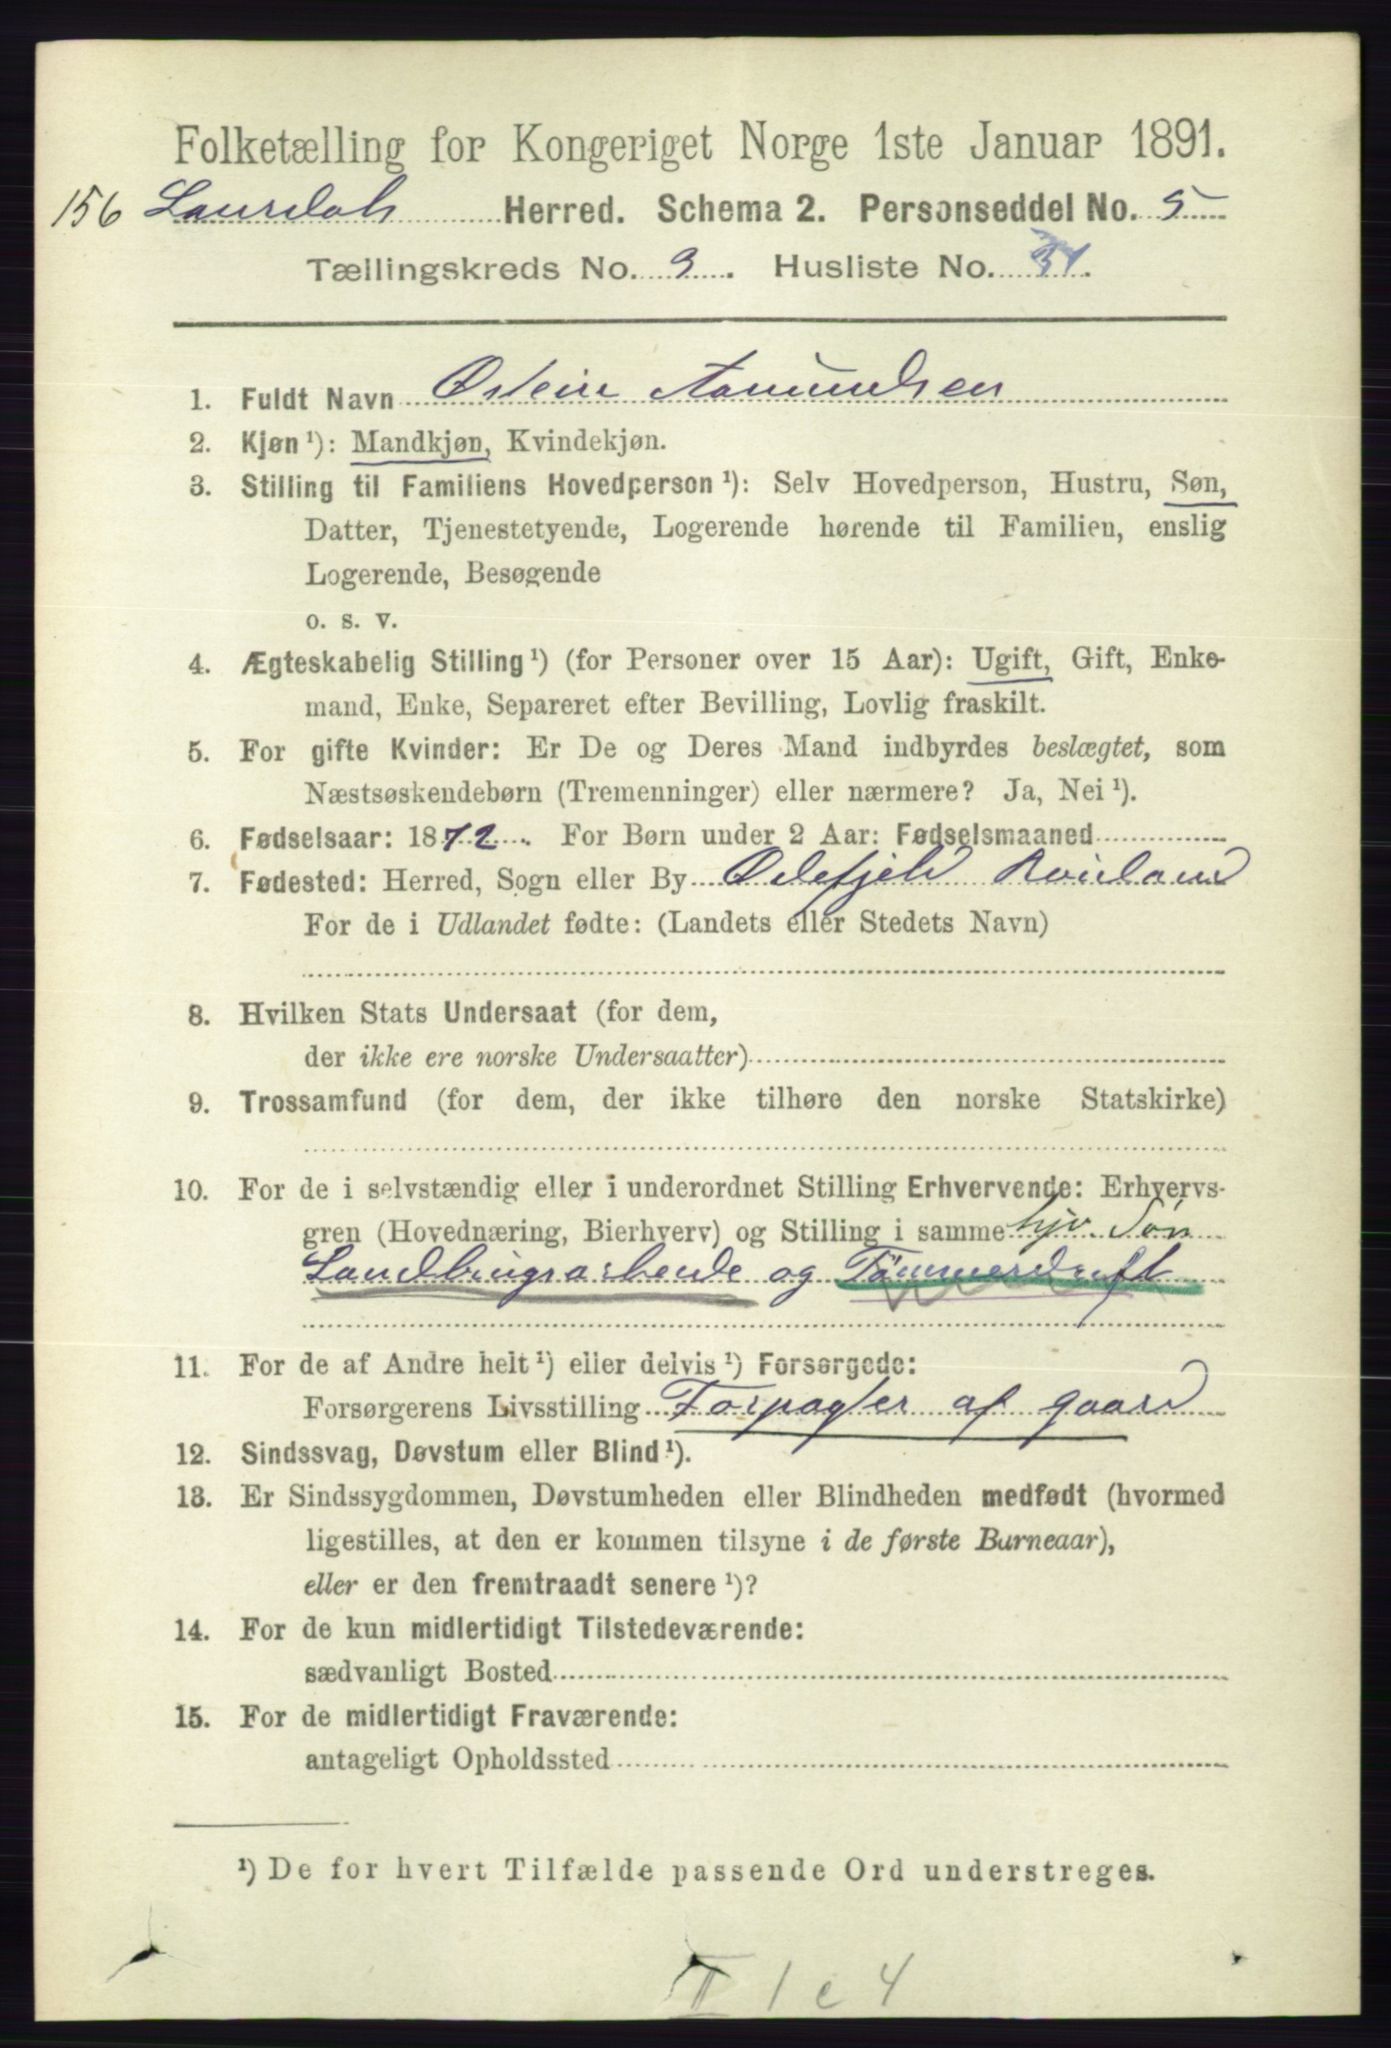 Folketælling for Kongeriget Norge 1ste Januar 1891.
156 Laurdals Herred. Schema 2. Personseddel No. 5
Tællingskreds No. 9. Husliste No. 31.
1. Fuldt Navn Østein Aamundsen
2. Kjøn ¹): Mandkjøn, Kvindekjøn.
3. Stilling til Familiens Hovedperson ¹): Selv Hovedperson, Hustru, Søn,
Datter, Tjenestetyende, Logerende hørende til Familien, enslig
Logerende, Besøgende
o. s. v.
4. Ægteskabelig Stilling ¹) (for Personer over 15 Aar): Ugift, Gift, Enke-
mand, Enke, Separeret efter Bevilling, Lovlig fraskilt.
5. For gifte Kvinder: Er De og Deres Mand indbyrdes beslægtet, som
Næstsøskendebørn (Tremenninger) eller nærmere? Ja, Nei ¹).
6. Fødselsaar: 1872. For Børn under 2 Aar: Fødselsmaaned
7. Fødested: Herred, Sogn eller By Ødefjeld Rauland
For de i Udlandet fødte: (Landets eller Stedets Navn)
8. Hvilken Stats Undersaat (for dem,
der ikke ere norske Undersaatter)
9. Trossamfund (for dem, der ikke tilhøre den norske Statskirke)
10. For de i selvstændig eller i underordnet Stilling Erhvervende: Erhvervs-
gren (Hovednæring, Bierhverv) og Stilling i samme hjv. Søn
Landbrugsarbeide og Tømmerdrift
11. For de af Andre helt ¹) eller delvis ¹) Forsørgede:
Forsørgerens Livsstilling Forpagter af gaard
12. Sindssvag, Døvstum eller Blind ¹).
13. Er Sindssygdommen, Døvstumheden eller Blindheden medfødt (hvormed
ligestilles, at den er kommen tilsyne i de første Barneaar),
eller er den fremtraadt senere ¹)?
14. For de kun midlertidigt Tilstedeværende:
sædvanligt Bosted
15. For de midlertidigt Fraværende:
antageligt Opholdssted
¹) De for hvert Tilfælde passende Ord understreges.
II 1 e 4